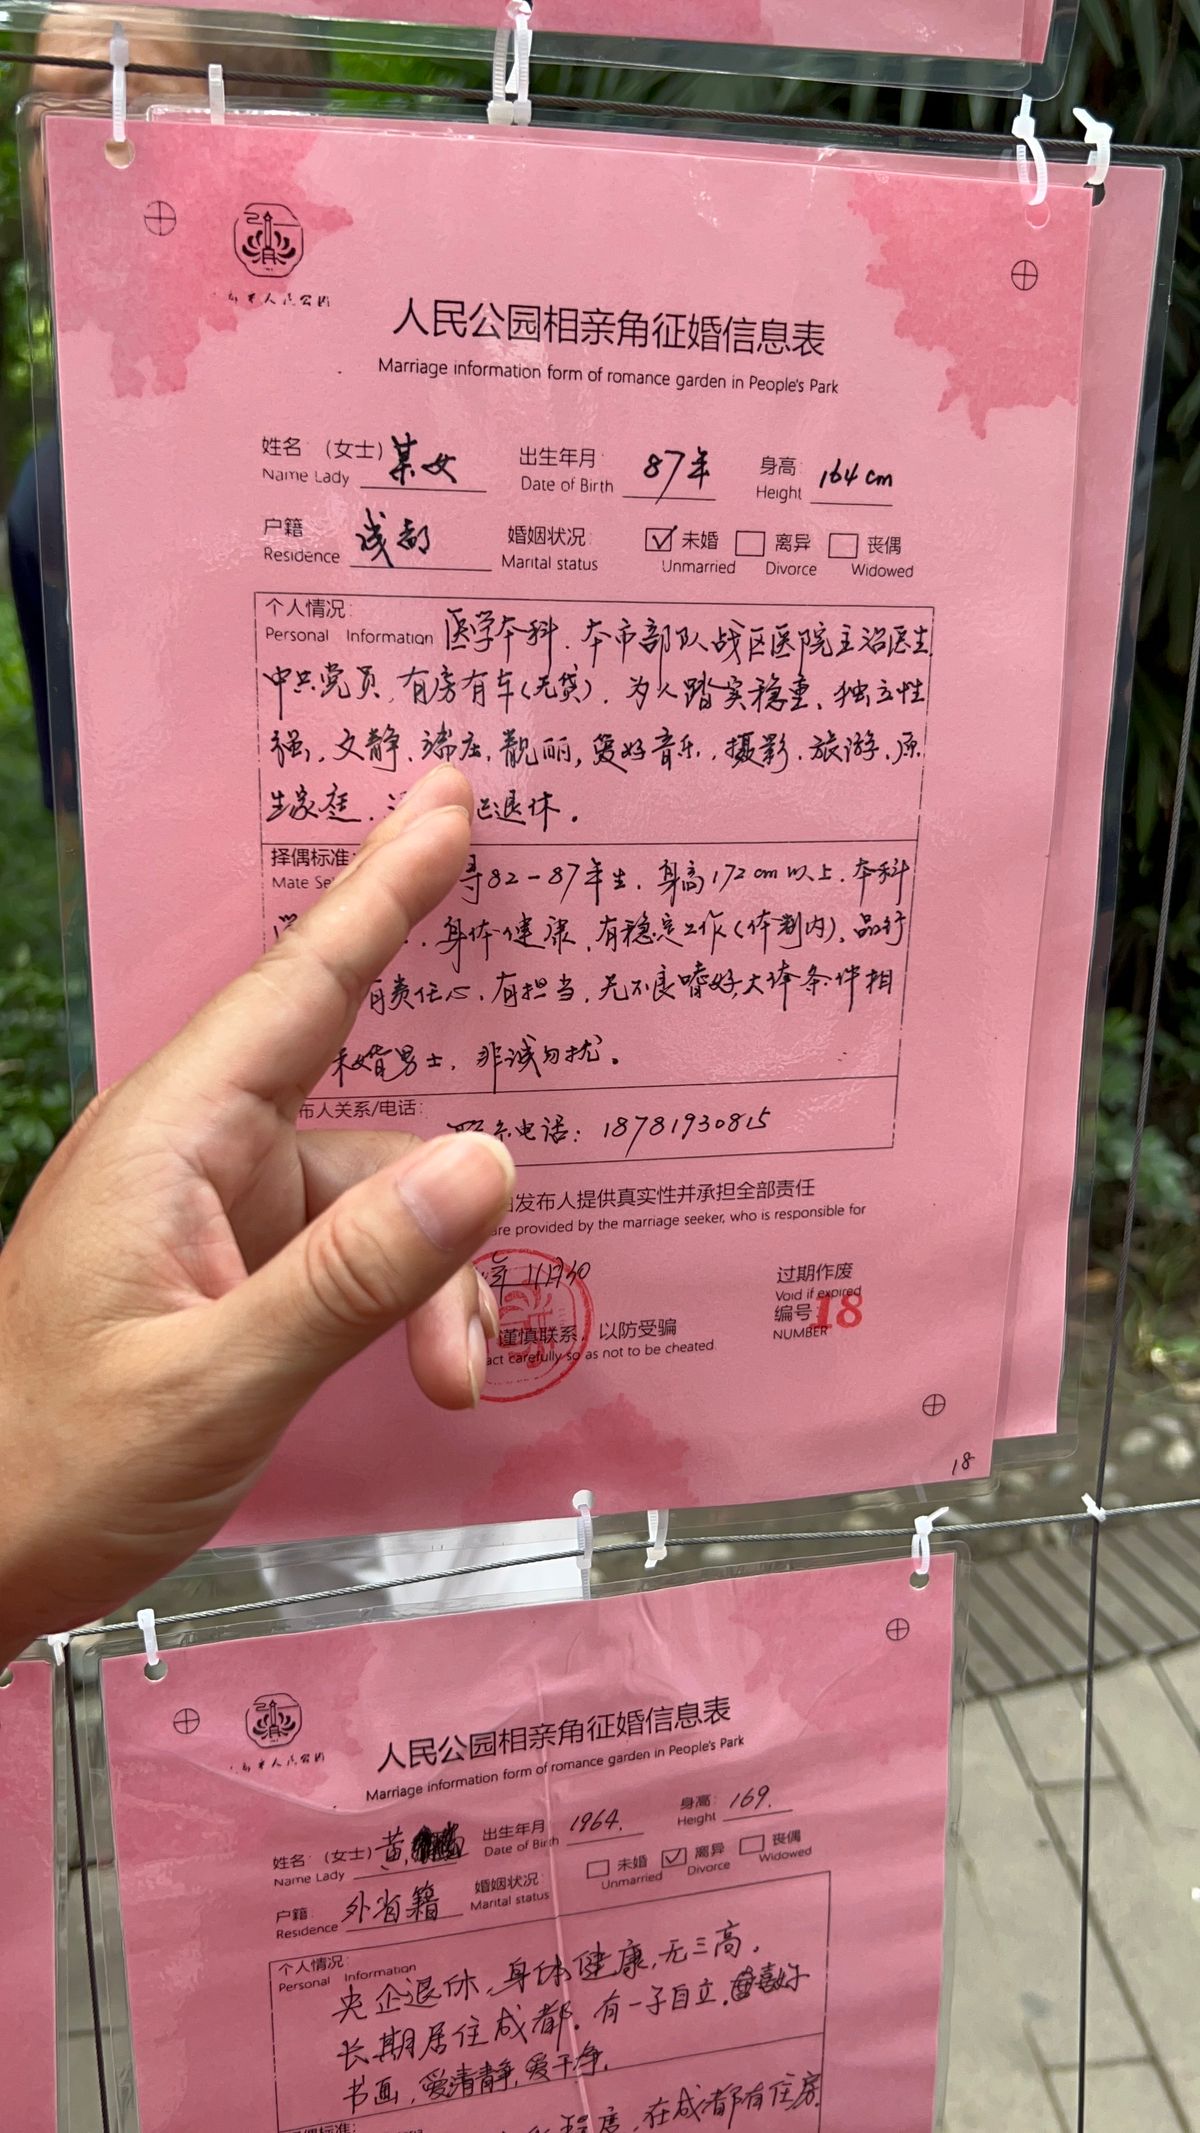 人民公园相亲角征婚信息表
Marriage information form of romance garden in People's Park
姓名:（女士）某女 出生年月: 87年 身高: 164cm
Name Lady Date of Birth Height
户籍 成都 婚姻状况: ☑ 未婚 □ 离异 □ 丧偶
Residence Marital status Unmarried Divorce Widowed
个人情况:
Personal Information 医学本科. 本市部队战区医院主治医生.
中共党员, 有房有车(无贷). 为人踏实稳重、独立性
强, 文静、端庄, 靓丽, 爱好音乐, 摄影. 旅游. 原
生家庭. 已退休。
择偶标准:
Mate Sel 寻82-87年生. 身高172cm以上. 本科
学 . 身体健康, 有稳定工作(体制内). 品行
有责任心, 有担当, 无不良嗜好, 大体条件相
未婚男士. 非诚勿扰。
布人关系/电话:
联系电话: 18781930815
由发布人提供真实性并承担全部责任
are provided by the marriage seeker, who is responsible for
年 11月30
过期作废
Void if expired
编号 18
NUMBER
谨慎联系, 以防受骗
act carefully so as not to be cheated
18
人民公园相亲角征婚信息表
Marriage information form of romance garden in People's Park
姓名:（女士）黄 出生年月: 1964. 身高: 169.
Name Lady Date of Birth Height
户籍 外省籍 婚姻状况: □ 未婚 ☑ 离异 □ 丧偶
Residence Marital status Unmarried Divorce Widowed
个人情况:
Personal Information
央企退休, 身体健康, 无三高.
长期居住成都. 有一子自立. 喜好
书画, 爱清静, 爱干净.
择偶标准:
程度, 在成都有住房.